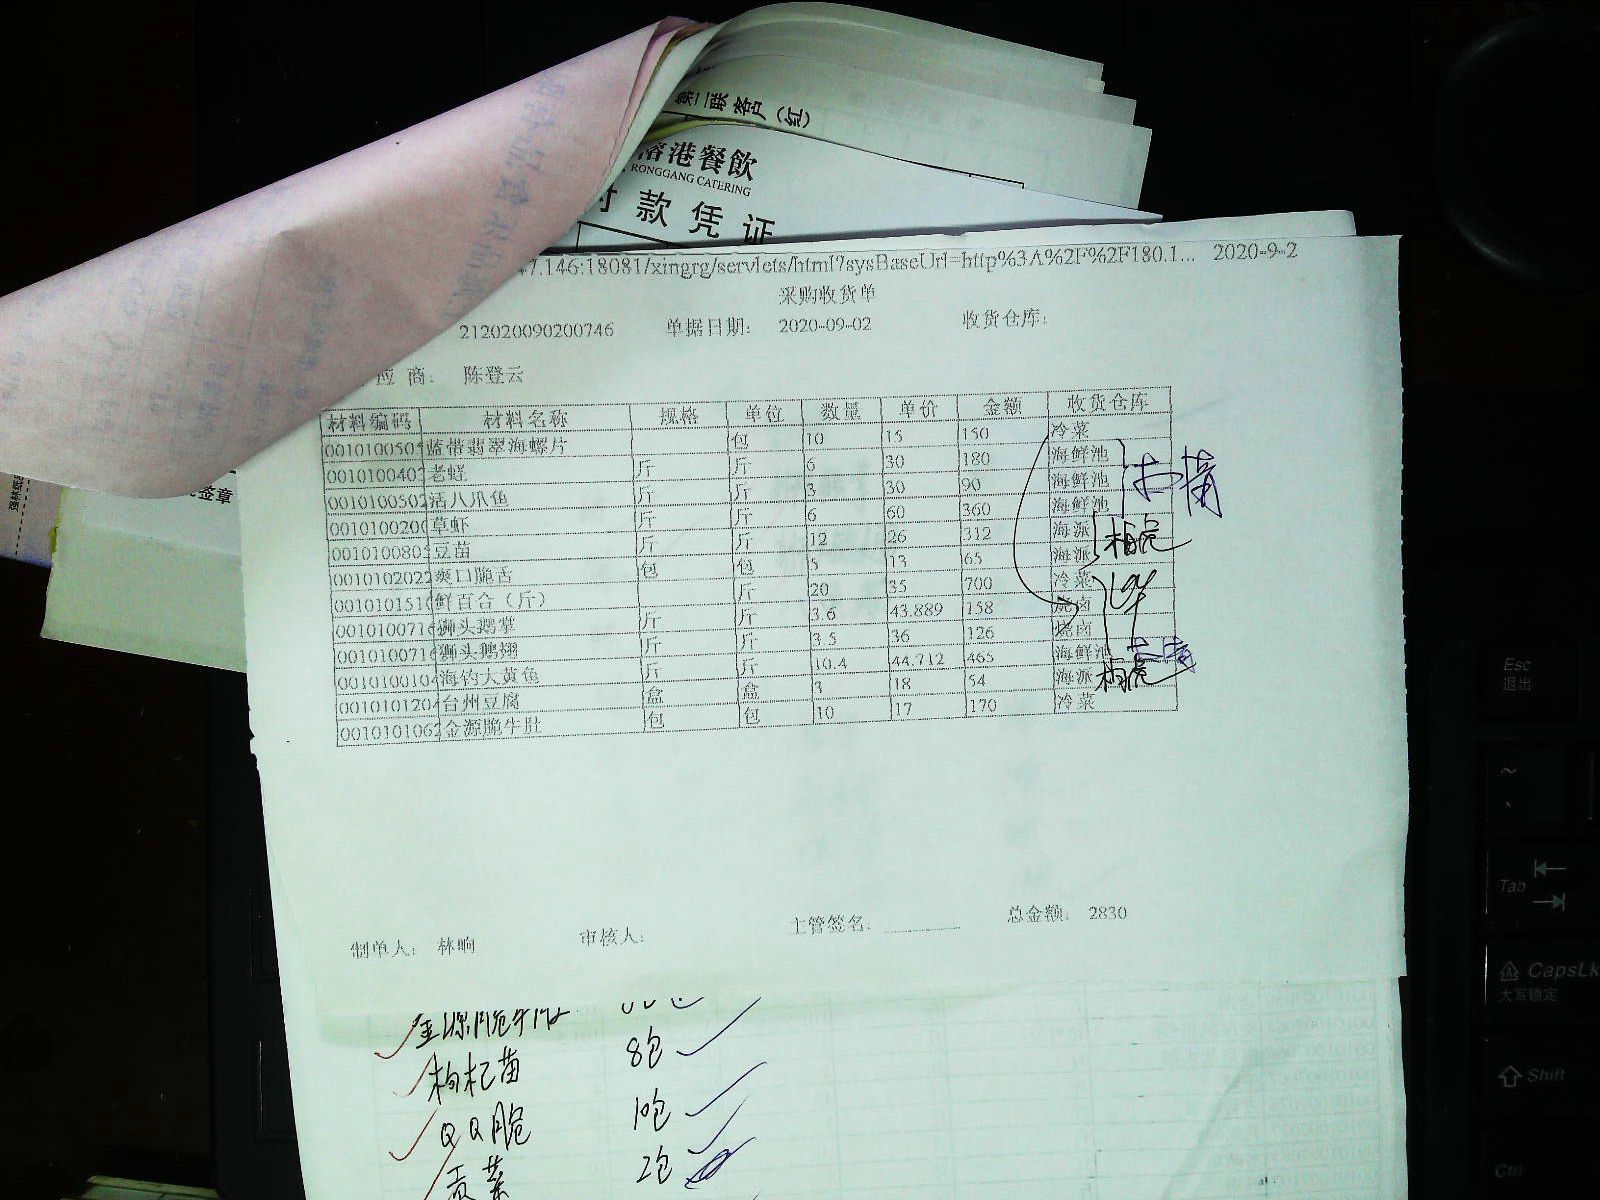 第二联客户（红）
溶港餐飲
RONGGANG CATERING
付款凭证
47.146:18081/xingrg/servlets/html?sysBaseUrl=http%3A%2F%2F180.1... 2020-9-2
采购收货单
212020090200746 单据日期: 2020-09-02 收货仓库:
应商: 陈登云
材料编码 材料名称 规格 单位 数量 单价 金额 收货仓库
0010100505 蓝带翡翠海螺片 包 10 15 150 冷菜
0010100403 老蛏 斤 斤 6 30 180 海鲜池
0010100502 活八爪鱼 斤 斤 3 30 90 海鲜池
0010100200 草虾 斤 斤 6 60 360 海鲜池
0010100805 豆苗 斤 斤 12 26 312 海派
0010102022 爽口脆舌 包 包 5 13 65 海派
0010101510 鲜百合（斤） 斤 20 35 700 冷菜
0010100716 狮头鹅掌 斤 斤 3.6 43.889 158 烧卤
0010100716 狮头鹅翅 斤 斤 3.5 36 126 烧卤
0010100104 海钓大黄鱼 斤 斤 10.4 44.712 465 海鲜池
0010101204 台州豆腐 盒 盒 3 18 54 海派
0010101062 金源脆牛肚 包 包 10 17 170 冷菜
签章
制单人: 林晌 审核人: 主管签名: 总金额: 2830
金源脆牛肚
枸杞苗 8包
QQ脆 10包
贡菜 2包
Esc
退出
~
Tab
CapsLk
大写锁定
Shift
Ctrl